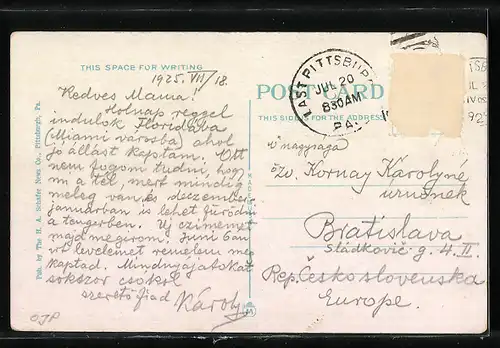 THIS SPACE FOR WRITING
1925. VII/18.
Kedves Mama!
Holnap reggel
indulok Floridába
(Miami városba) ahol
jó állást kaptam. Ott
nem fogom tudni, hogy
mi a tél, mert mindig
meleg van és deczember,
januárban is lehet fürödni
a tengerben. Uj czimemet
majd megirom. Juni 6 an
irt levelemet remélem meg
kaptad. Mindnyájatokat
sokszor csokol
szerető fiad Károly
OJP
Pub. by The H. A. Schafer News Co., Pittsburgh, Pa.
EAST PITTSBURGH
JUL 20
830AM
PA.
POST CARD
THIS SIDE FOR THE ADDRESS
nagysága
özv. Kornay Károlyné
urnőnek
Bratislava
Sládkovič g. 4. II.
Rep. Československa
Europe.